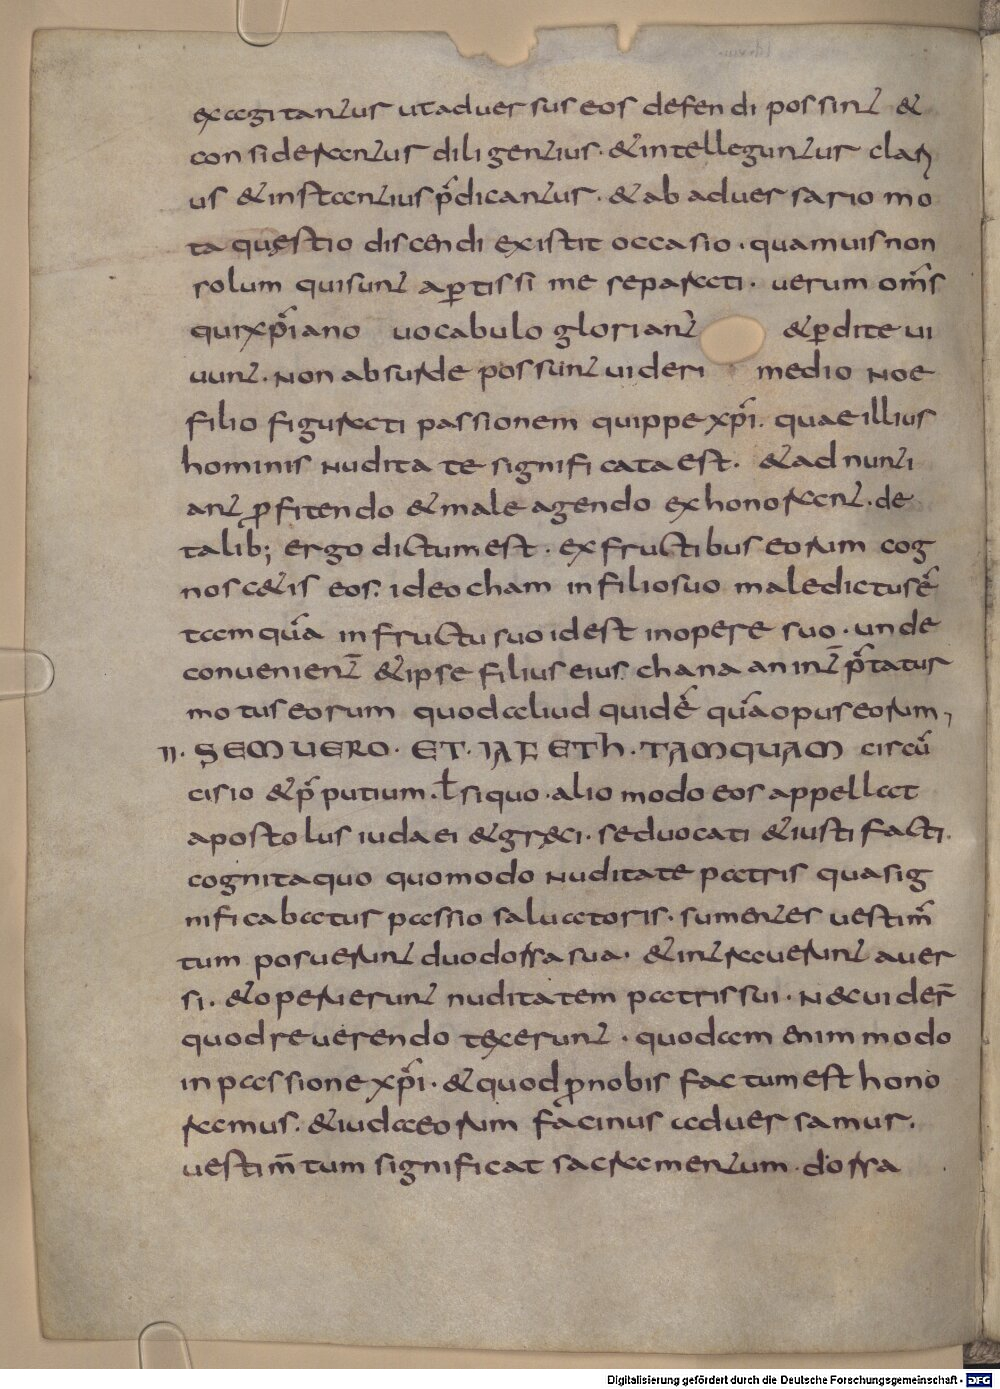 excogitantur ut aduersus eos defendi possint &
considerantur diligentius · & intelleguntur clari
us & instantius p̄dicantur · & ab aduersario mo
ta questio discendi existit occasio · quamuis non
solum qui sunt aꝑtissime separati · uerum om̄s
qui xp̄iano uocabulo gloriant & ꝑdite ui
uunt · non absurde possunt uideri medio noe
filio figurati passionem quippe xp̄i · quae illius
hominis nuditate significata est · & adnunti
ant ꝓfitendo & male agendo exhonorant · de
talib; ergo dictum est · ex fructibus eorum cog
nosc&is eos · ideo cham in filio suo maledictus ē
tam quā in fructu suo id est in opere suo · unde
conuenient̄ & ipse filius eius chanaan int̄p̄tatur
motus eorum quod aliud quid ē quā opus eorum,
II · SEM UERO · ET · IAFETH · TAMQUAM circū
cisio & p̄putium · ł si quo · alio modo eos appellat
apostolus iudaei & gręci · sed uocati & iustificati ·
cognita quo quomodo nuditate patris qua sig
nificabatur passio saluatoris · sumentes uestim̄
tum posuerunt duo dorsa sua · & intrauerunt auer
si · & operuerunt nuditatem patris sui · nec uider̄
quod reuerendo texerunt · quodam enim modo
in passione xp̄i · & quod ꝓ nobis factum est hono
ramus · & iudaeorum facinus aduersamur ·
uestim̄tum significat sacramentum · dorsa
Digitalisierung gefördert durch die Deutsche Forschungsgemeinschaft - DFG